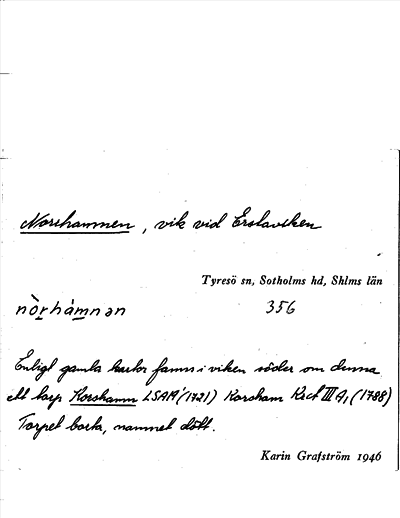 Norrhamnen, vik vid Erstaviken
Tyresö sn, Sotholms hd, Shlms län
nòr̲hàm̲nən 356
Enligt gamla kartor fanns i viken söder om denna
ett torp Korshamn LSA A1 (1721) Korsham Krch III A, (1788)
Torpet borta, namnet dött.
Karin Grafström 1946